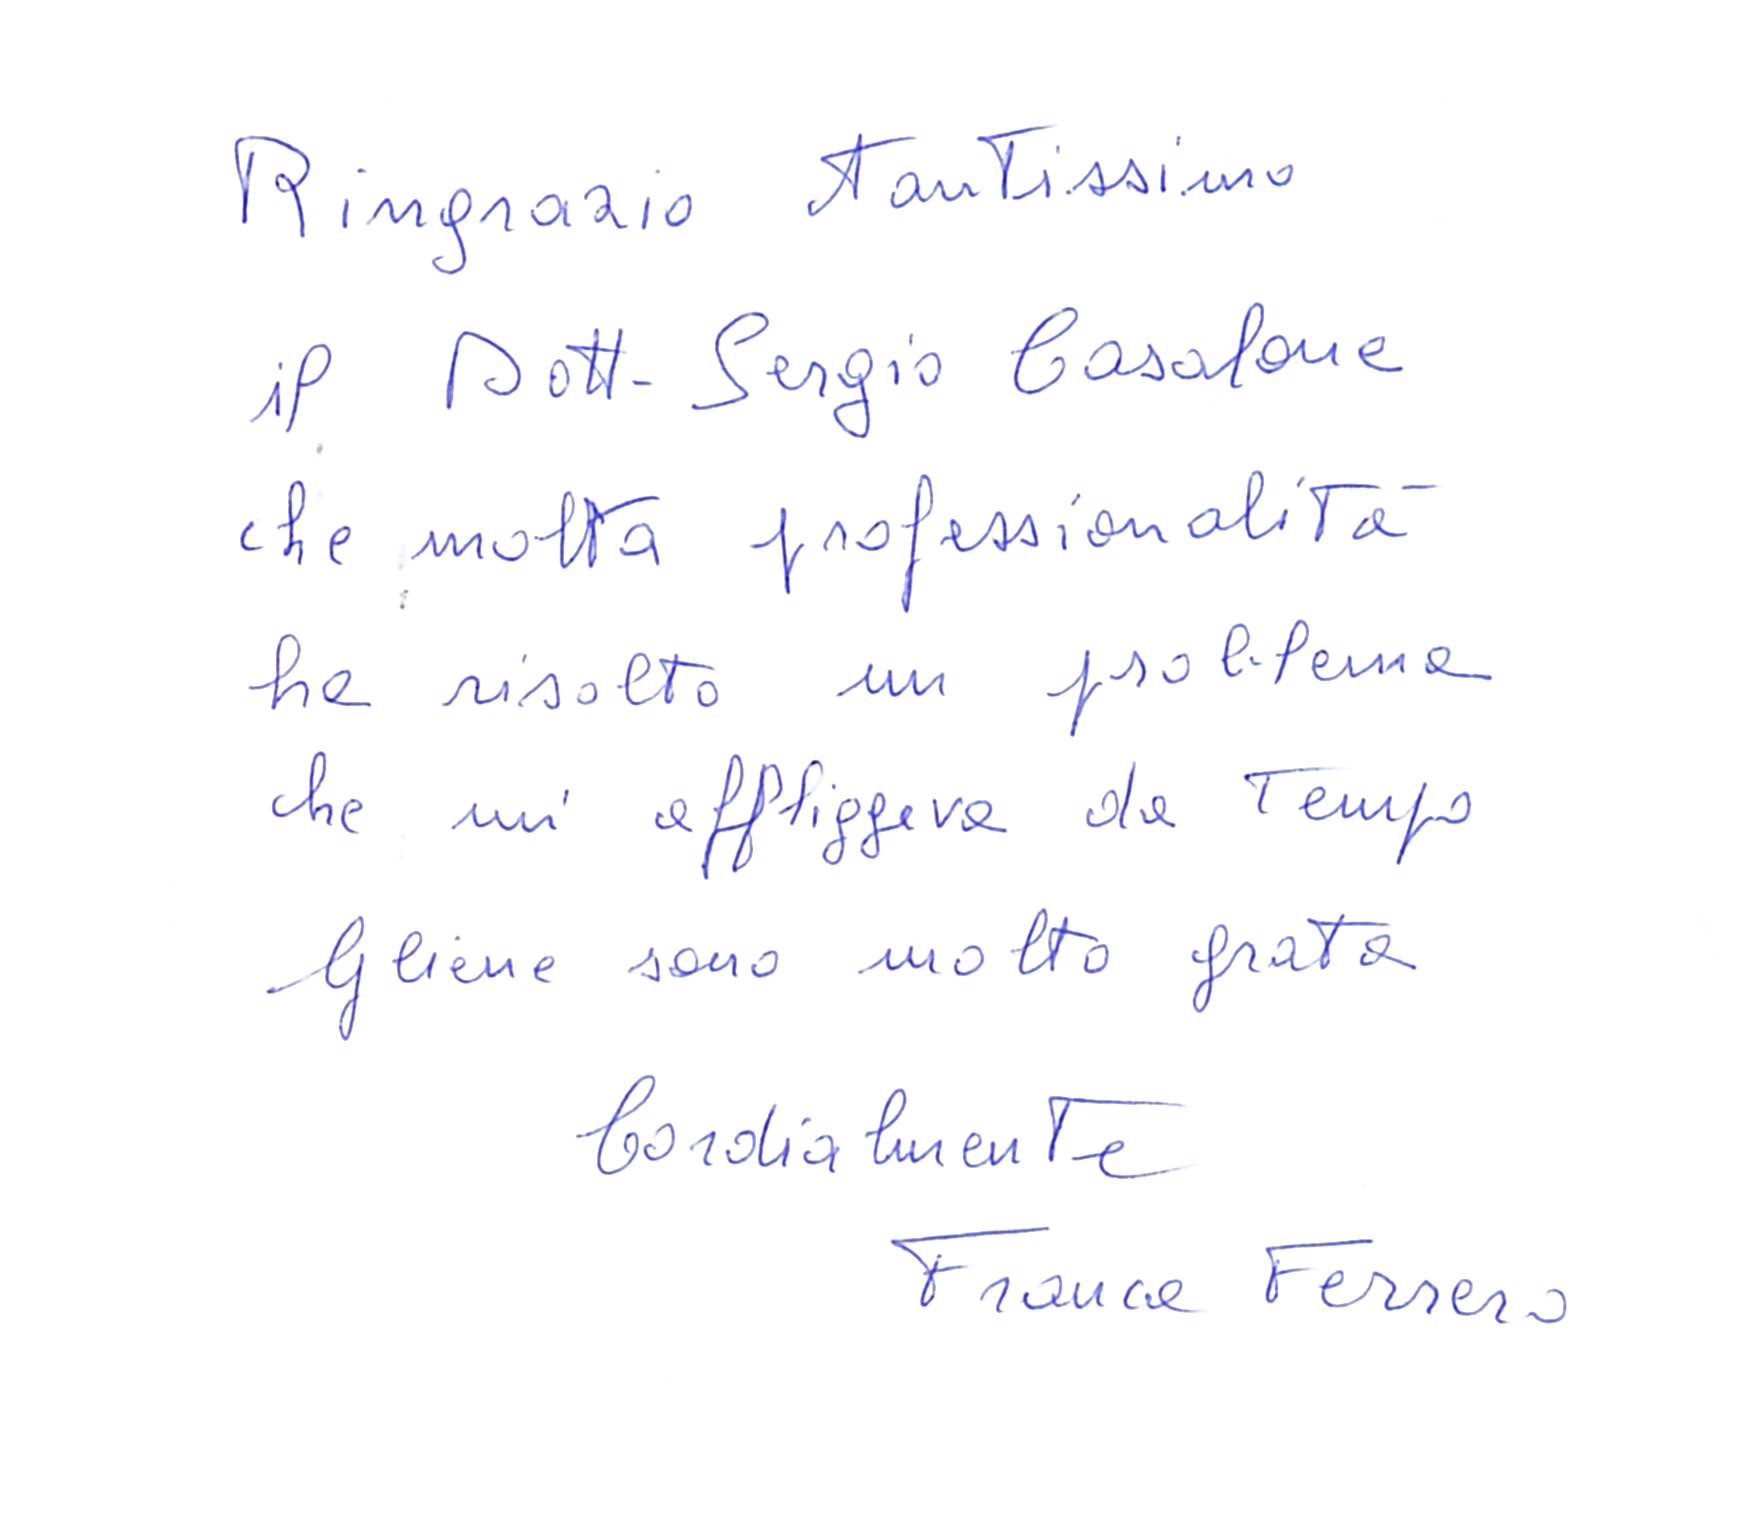 Ringrazio tantissimo
il Dott. Sergio Casalone
che molta professionalità
ha risolto un problema
che mi affliggeva da tempo
Gliene sono molto grata
Cordialmente
Franca Ferrero